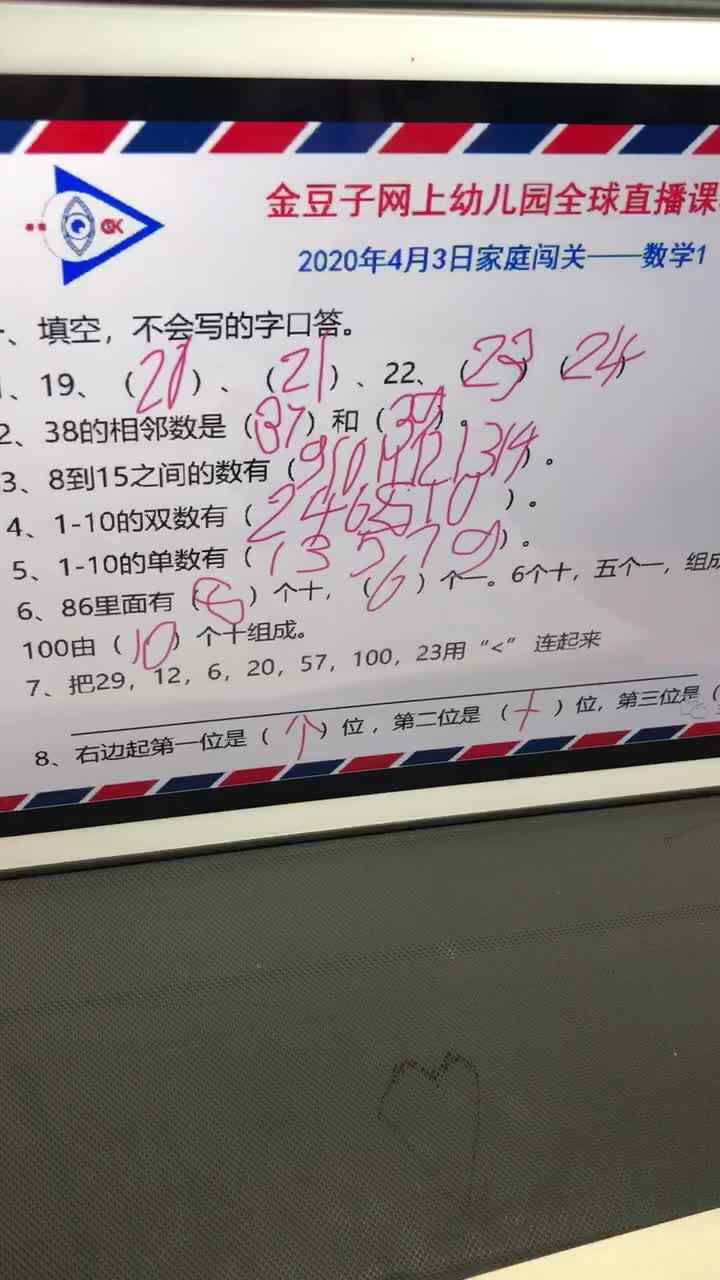 金豆子网上幼儿园全球直播课
2020年4月3日家庭闯关——数学1
、填空，不会写的字口答。
、19、（20）、（21）、22、（23）（24）
2、38的相邻数是（37）和（39）。
3、8到15之间的数有（9 10 11 12 13 14）。
4、1-10的双数有（2 4 6 8 10）。
5、1-10的单数有（1 3 5 7 9）。
6、86里面有（8）个十，（6）个一。6个十，五个一，组成
100由（10）个十组成。
7、把29，12，6，20，57，100，23用“<”连起来
8、右边起第一位是（个）位，第二位是（十）位，第三位是（